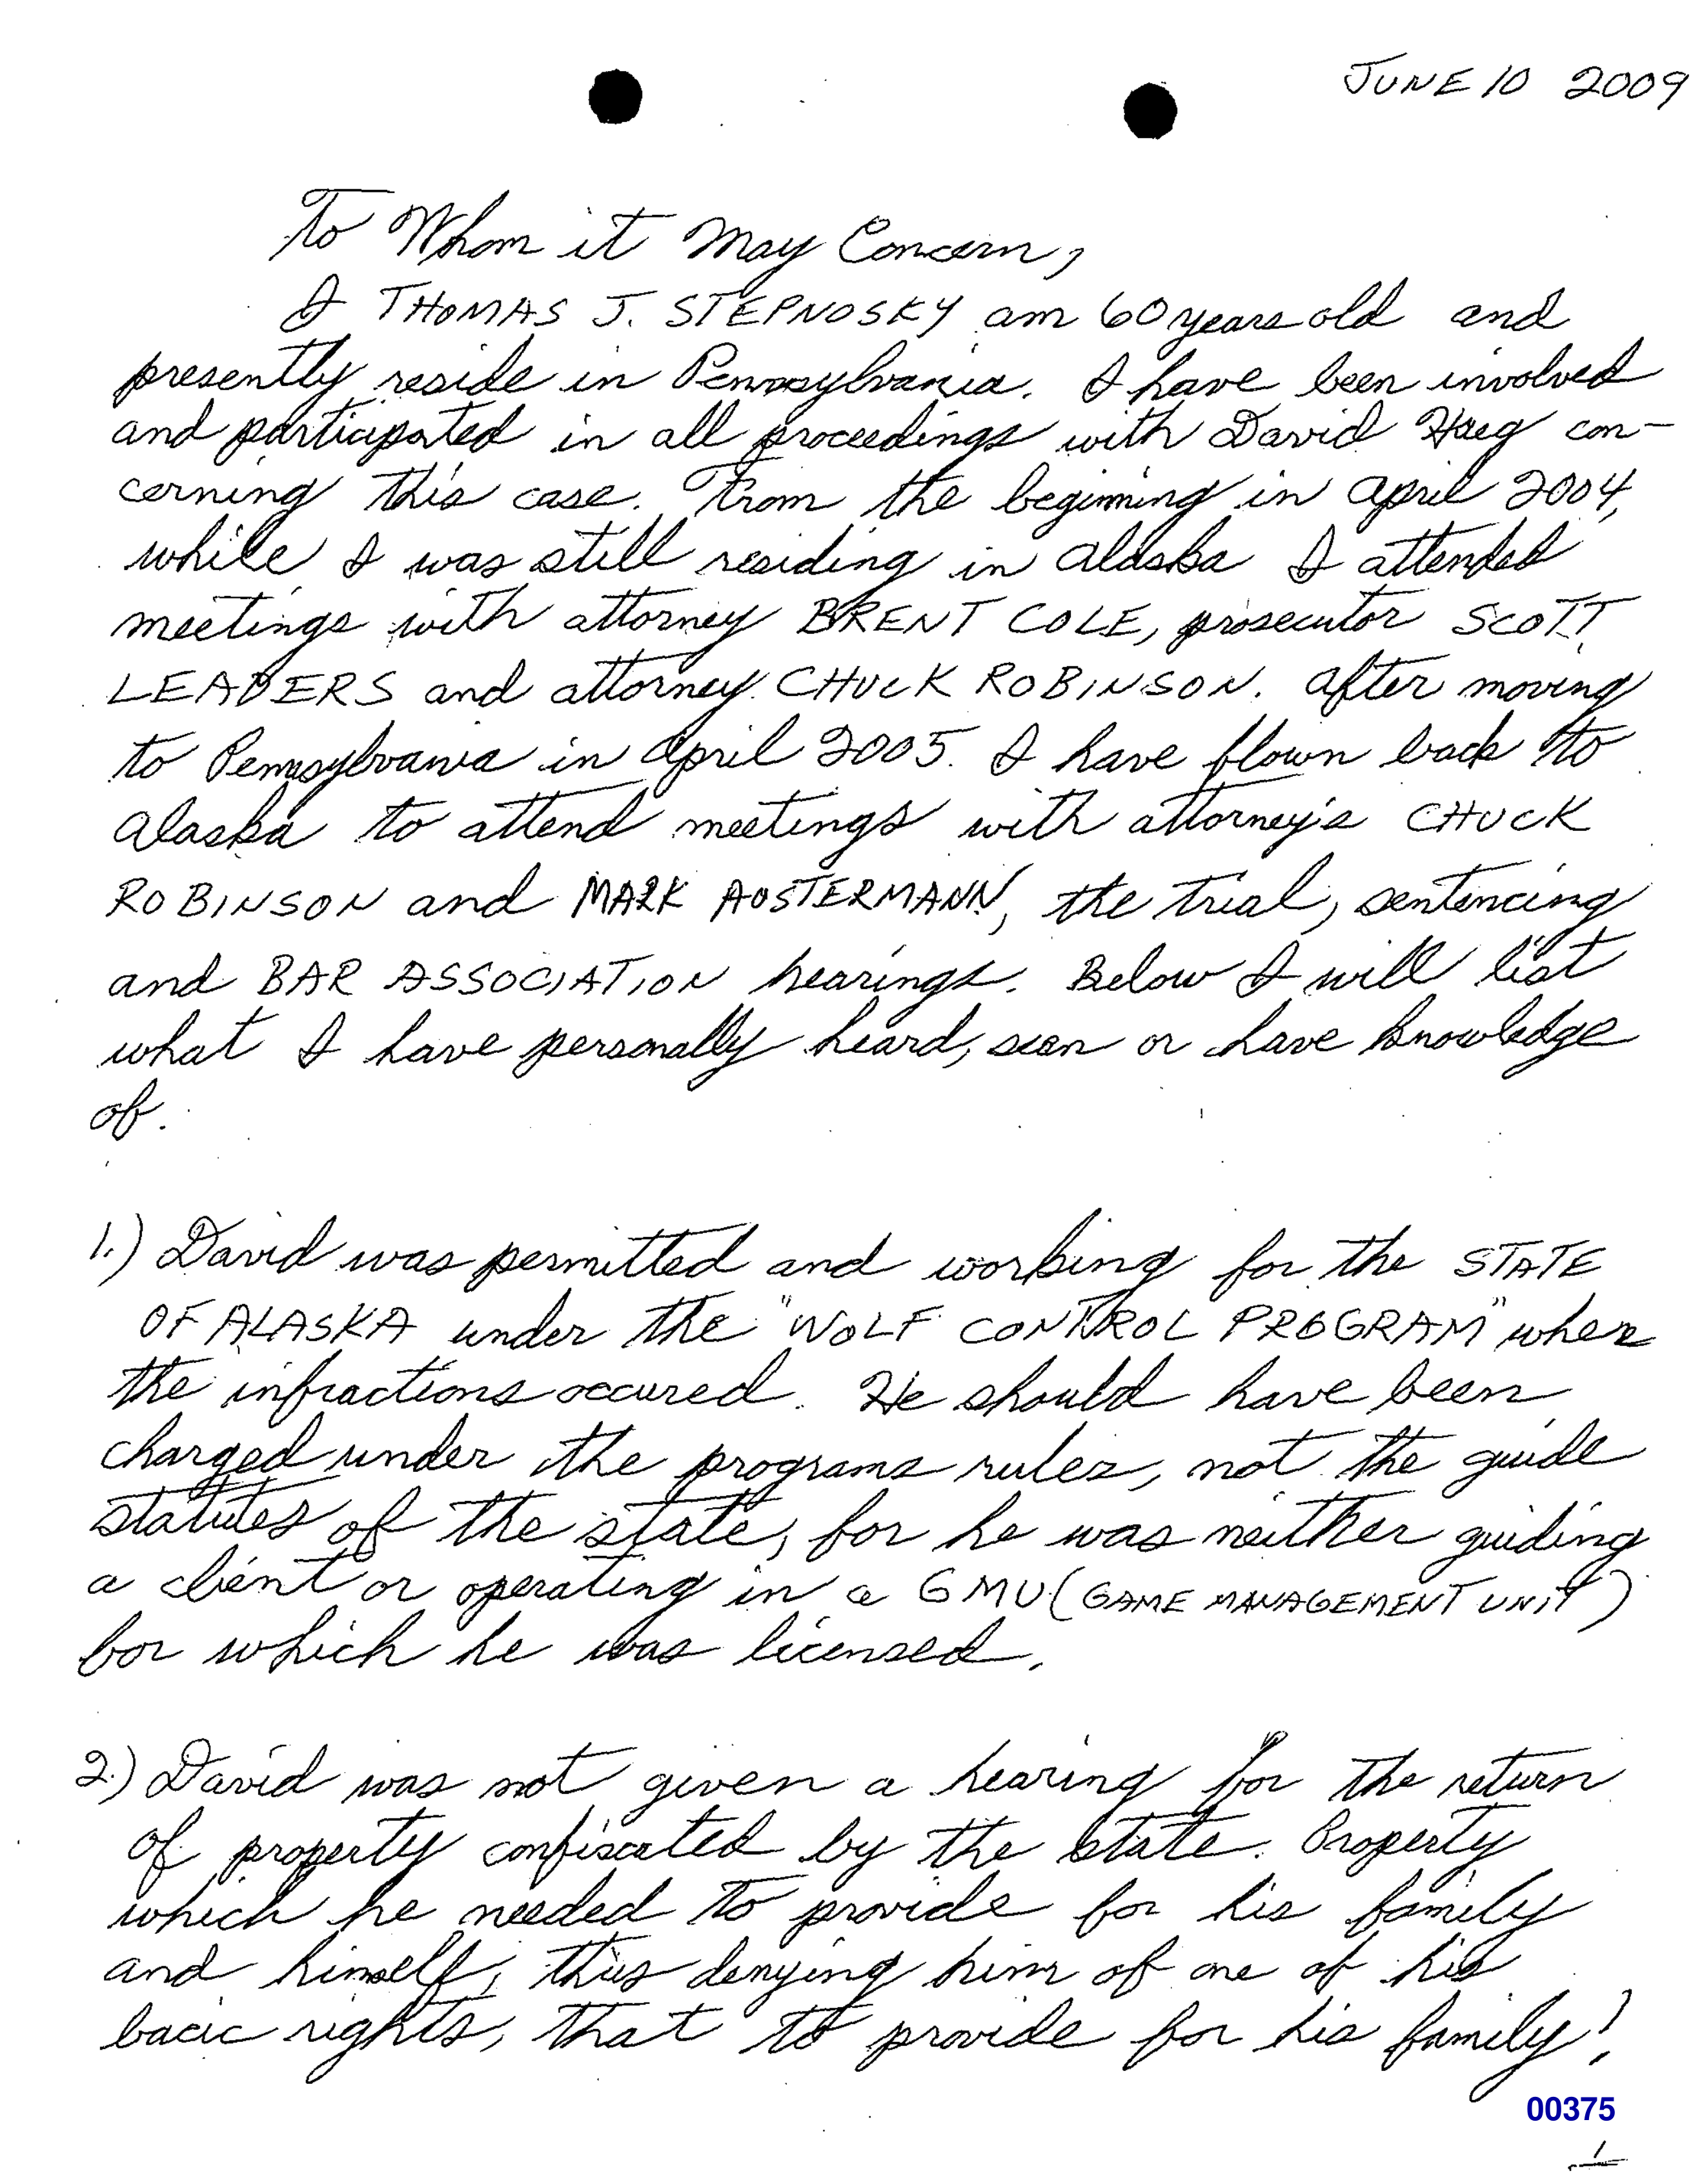 JUNE 10 2009
To Whom it May Concern,
I THOMAS J. STEPNOSKY am 60 years old and
presently reside in Pennsylvania. I have been involved
and participated in all proceedings with David Haeg con-
cerning this case. From the beginning in April 2004,
while I was still residing in Alaska I attended
meetings with attorney BRENT COLE, prosecutor SCOTT
LEADERS and attorney CHUCK ROBINSON. After moving
to Pennsylvania in April 2005. I have flown back to
Alaska to attend meetings with attorney's CHUCK
ROBINSON and MARK AOSTERMANN, the trial, sentencing
and BAR ASSOCIATION hearings. Below I will list
what I have personally heard, seen or have knowledge
of.
1.) David was permitted and working for the STATE
OF ALASKA under the "WOLF CONTROL PROGRAM" when
the infractions occured. He should have been
charged under the programs rules, not the guide
statutes of the state, for he was neither guiding
a client or operating in a GMU (GAME MANAGEMENT UNIT)
for which he was licensed.
2.) David was not given a hearing for the return
of property confiscated by the state. Property
which he needed to provide for his family
and himself, thus denying him of one of his
basic rights, that to provide for his family!
00375
1